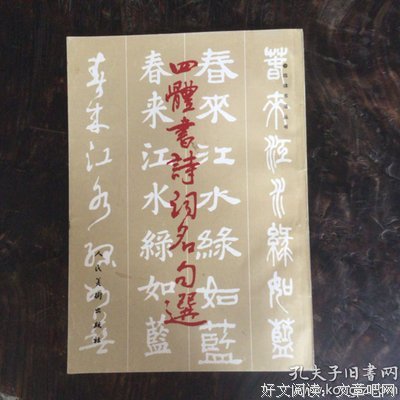 春來江水綠如藍
春來江水綠如藍
四體書詩詞名句選
春来江水綠如藍
春来江水绿如蓝
人民美術出版社
孔夫子旧书网
好文阅读: 文章吧网